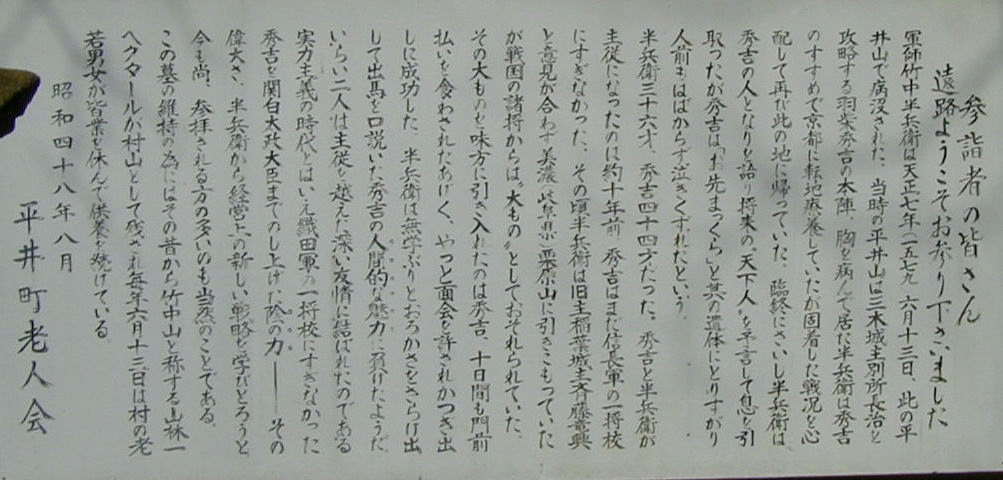 参詣者の皆さん
遠路ようこそお参り下さいました
軍師竹中半兵衛は天正七年(一五七九)六月十三日、此の平
井山で病没された、当時の平井山は三木城主別所長治を
攻略する羽柴秀吉の本陣、胸を病んで居た半兵衛は秀吉
のすすめで京都に転地療養していたが固着した戦況を心
配して再び此の地に帰っていた、臨終にさいし半兵衛は、
秀吉の人となりを語り将来の〝天下人〟を予言して息を引
取ったが秀吉は「お先まっくら」と其の遺体にとりすがり
人前もはばからず泣きくずれたという。
半兵衛三十六才、秀吉四十四才だった。秀吉と半兵衛が
主従になったのは約十年前、秀吉はまだ信長軍の一将校
にすぎなかった、その頃半兵衛は旧主稲葉城主斉藤竜興
と意見が合わず美濃(岐阜県)栗原山に引きこもっていた
が戦国の諸将からは〝大もの〟としておそれられていた、
その大ものを味方に引き入れたのは秀吉、十日間も門前
払いを食わされたあげく、やっと面会を許されかつぎ出
しに成功した、半兵衛は無学ぶりとおろかさをさらけ出
して出馬を口説いた秀吉の人間的な魅力に負けたようだ、
いらい二人は主従を越えた深い友情に結ばれたのである
実力主義の時代とはいえ織田軍の一将校にすぎなかった
秀吉を関白太政大臣までのし上げた陰の力――その
偉大さ、半兵衛から経営上の新しい戦略を学びとろうと
今も尚、参拝される方の多いのも当然のことである。
この墓の維持の為にはその昔から竹中山と称する山林一
ヘクタールが村山として残され毎年六月十三日は村の老
若男女が皆業を休んで供養を続けている
昭和四十八年八月
平井町老人会